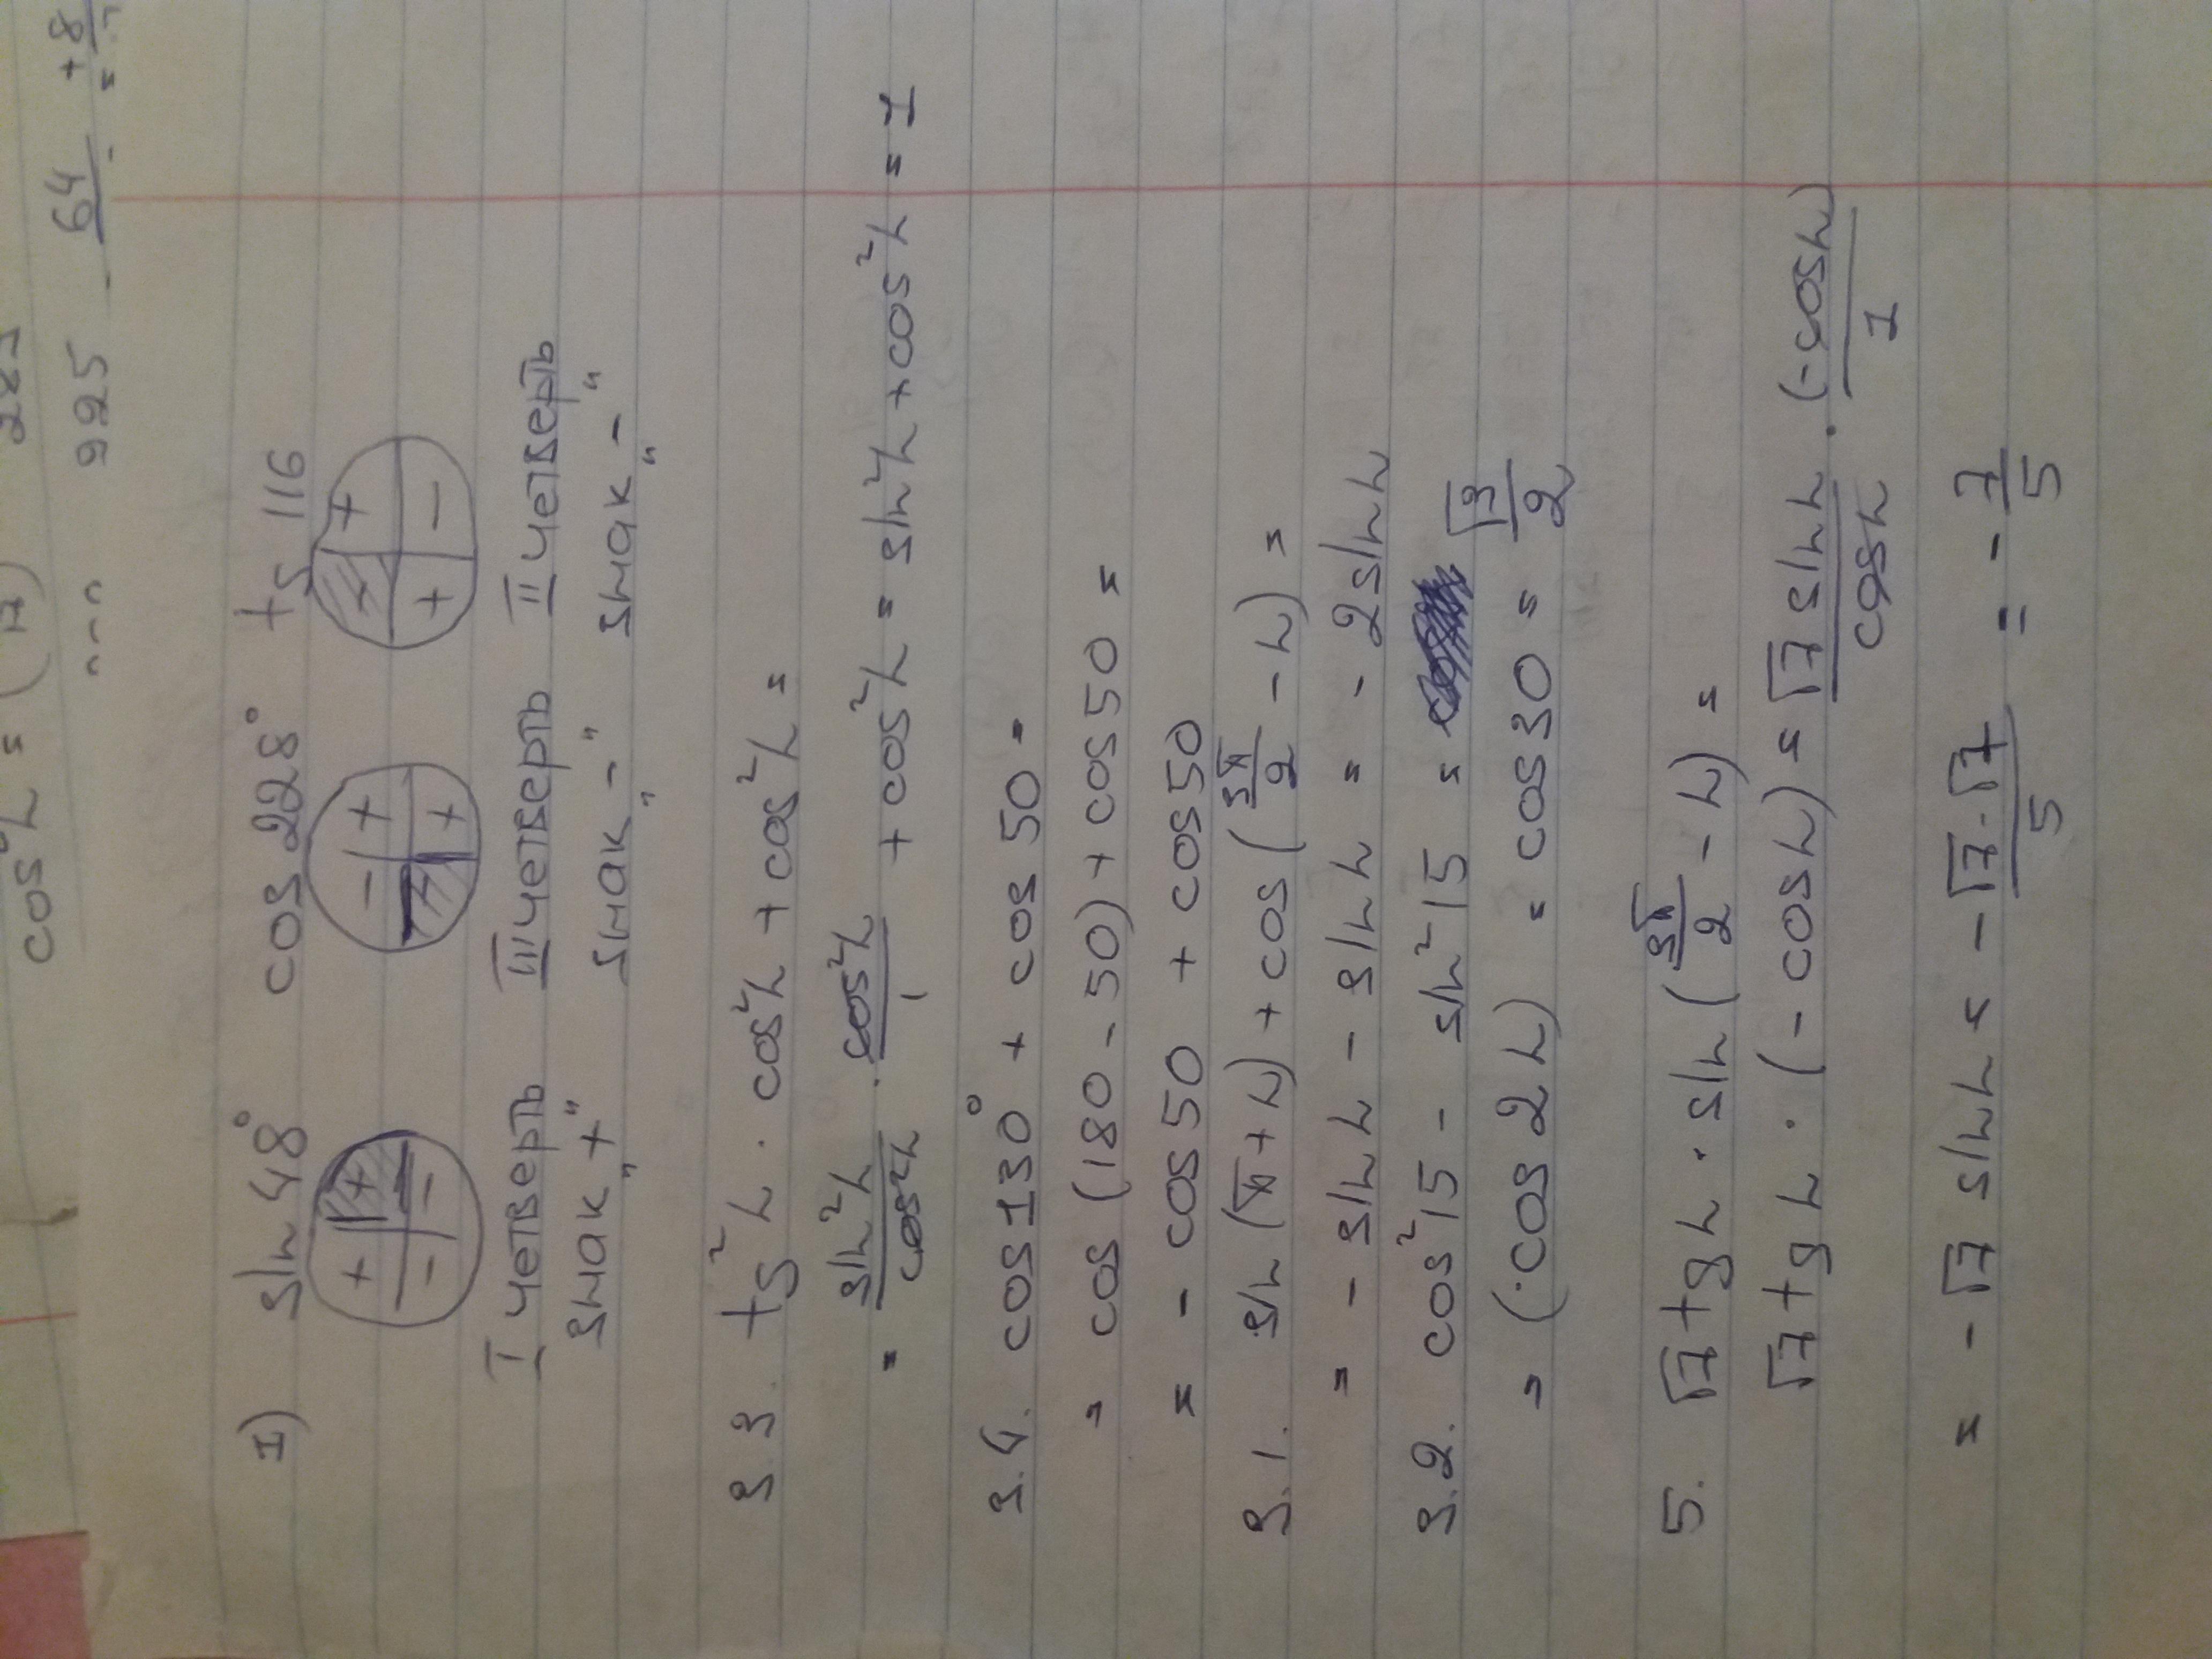 cos²α = (
925 64 + 8
1) sin 48° cos 228° tg 116
+ + - + - +
- - - + + -
I четверть III четверть II четверть
знак „+" знак „-" знак „-"
3.3. tg²α · cos²α + cos²α =
= sin²α/cos²α · cos²α/1 + cos²α = sin²α + cos²α = 1
3.4. cos130° + cos 50 =
= cos (180 - 50) + cos 50 =
= - cos 50 + cos 50
3.1. sin (π + α) + cos (3π/2 - α) =
= - sin α - sin α = - 2 sin α
3.2. cos²15 - sin²15 =
= (cos 2α) = cos 30 = √3/2
5. √7 tg α · sin (3π/2 - α) =
√7 tg α · (- cos α) = √7 sin α/cos α · (-cos α)/1
= - √7 sin α = - √7·√7/5 = - 7/5